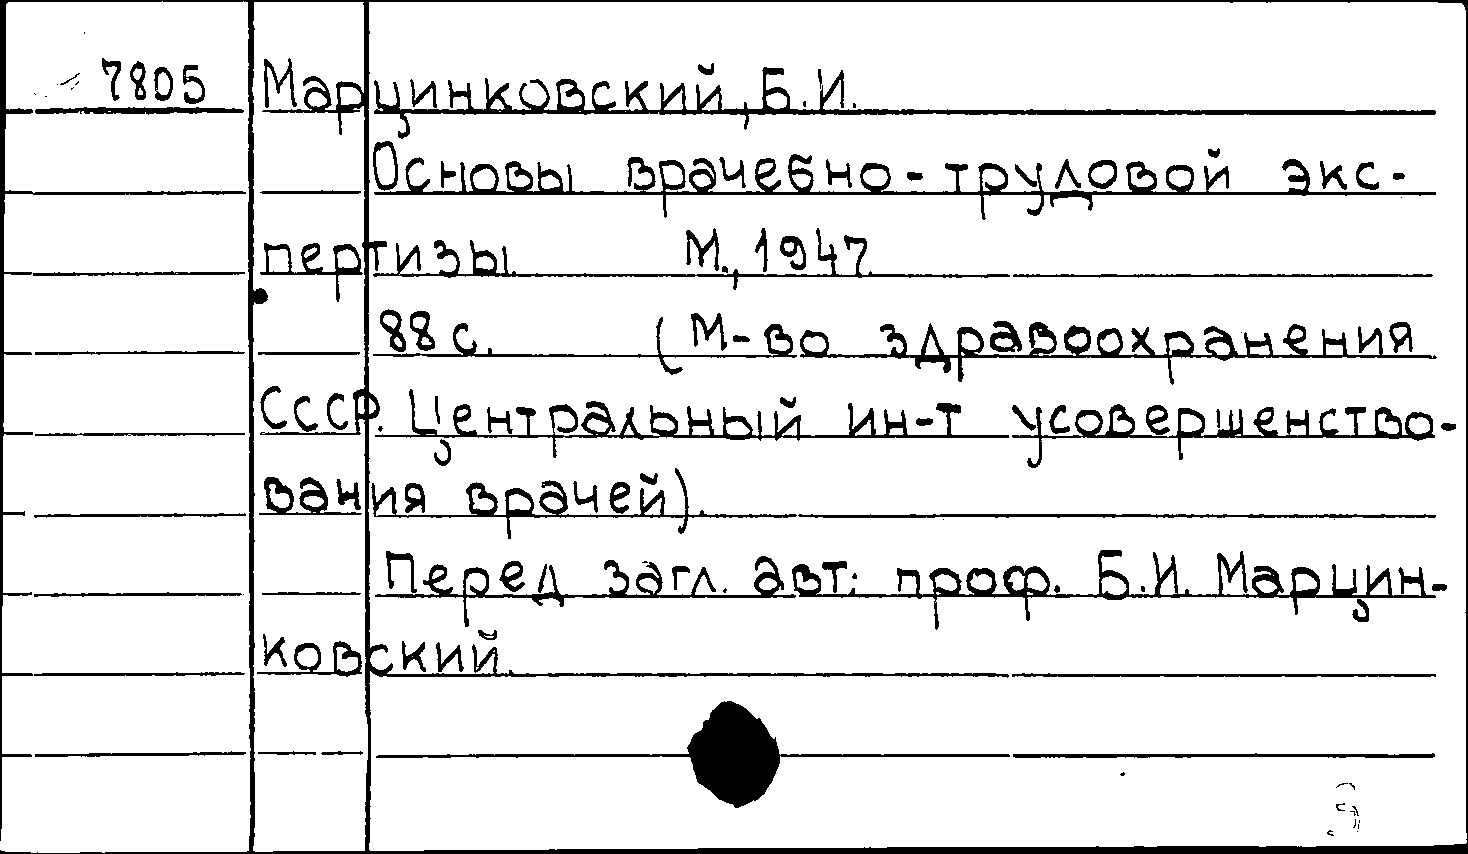 7805 Марцинковский, Б.И.
Основы врачебно-трудовой экс-
пертизы М., 1947
88 с. (М-во здравоохранения
СССР. Центральный ин-т усовершенство-
вания врачей).
Перед загл. авт: проф. Б.И. Марцин-
ковский.